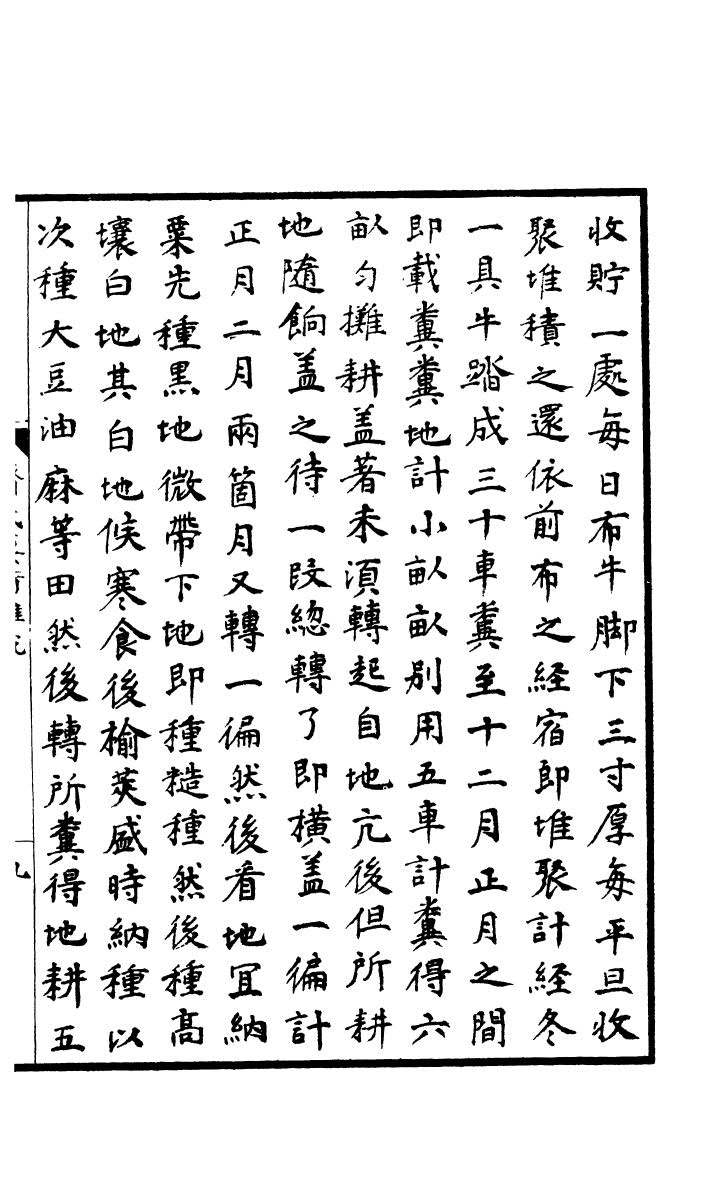 收貯一處每日布牛脚下三寸厚每平旦收
聚堆積之還依前布之経宿即堆聚計経冬
一具牛踏成三十車糞至十二月正月之間
即載糞糞地計小畝畝別用五車計糞得六
畝匀攤耕盖著未湏轉起自地亢後但所耕
地隨餉盖之待一段緫轉了即横盖一徧計
正月二月兩箇月又轉一徧然後看地宜納
粟先種黑地微帶下地即種糙種然後種髙
壤白地其白地候寒食後榆莢盛時納種以
次種大豆油麻等田然後轉所糞得地耕五
九